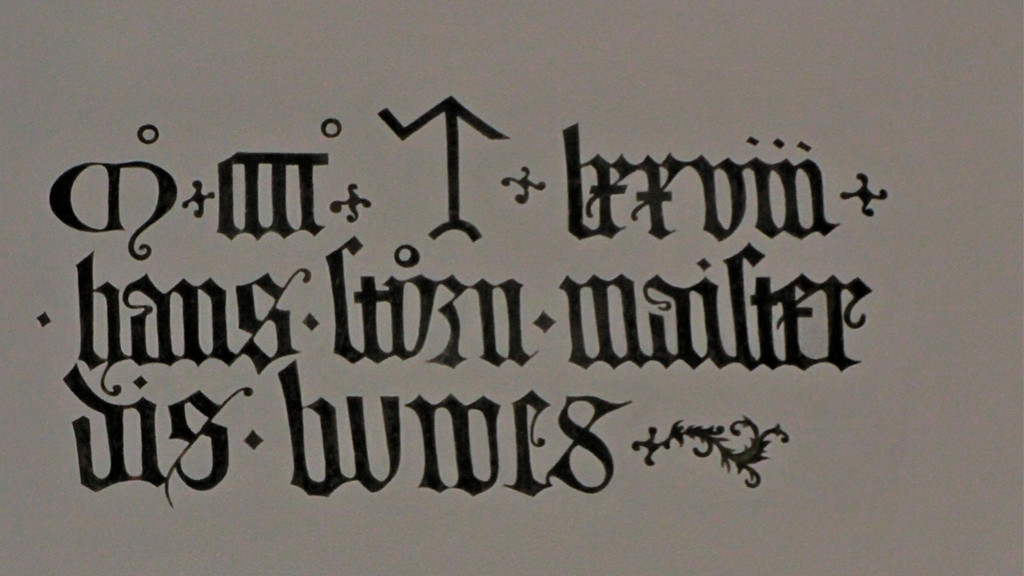 m° + cccc° + + lxxviii +
· hans · ſtůrn · maiſter
dis · buwes +